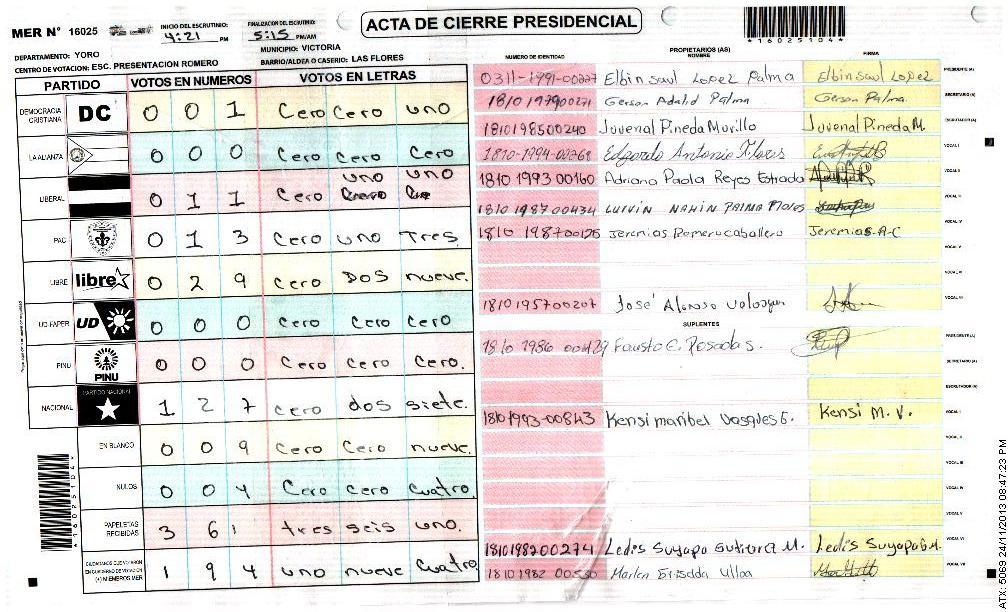 MER N° 16025
INICIO DEL ESCRUTINIO: 4:21 PM
FINALIZACION DEL ESCRUTINIO: 5:15 PM/AM
ACTA DE CIERRE PRESIDENCIAL
*16025104*
DEPARTAMENTO: YORO
MUNICIPIO: VICTORIA
CENTRO DE VOTACION: ESC. PRESENTACION ROMERO
BARRIO/ALDEA O CASERIO: LAS FLORES
PARTIDO VOTOS EN NUMEROS VOTOS EN LETRAS
DEMOCRACIA CRISTIANA DC 0 0 1 Cero Cero uno
LA ALIANZA 0 0 0 Cero Cero Cero
LIBERAL 0 1 1 Cero uno uno
PAC 0 1 3 Cero uno Tres
LIBRE libre 0 2 9 Cero DOS nueve.
UD-FAPER UD 0 0 0 Cero Cero Cero
PINU PINU 0 0 0 Cero Cero Cero.
NACIONAL PARTIDO NACIONAL 1 2 7 Cero dos siete.
EN BLANCO 0 0 9 Cero Cero nueve.
NULOS 0 0 4 Cero Cero Cuatro
PAPELETAS RECIBIDAS 3 6 1 tres seis uno.
CIUDADANOS QUE VOTARON EN CUADERNO DE VOTACION (+) MIEMBROS MER 1 9 4 uno nueve Cuatro
*16025104*
PROPIETARIOS (AS)
NUMERO DE IDENTIDAD NOMBRE FIRMA
0311-1991-00227 Elbin saul Lopez Palma Elbin saul Lopez PRESIDENTE (A)
1810 197900271 Gerson Adalid Palma Gerson Palma. SECRETARIO (A)
1810198500240 Juvenal Pineda Murillo Juvenal Pineda M. ESCRUTADOR (A)
1810-1994-00268 Edgardo Antonio Flores VOCAL I
1810 1993 00160 Adriana Paola Reyes Estrada VOCAL II
1810 1987 00434 LURVIN NAHIN PALMA Flores VOCAL III
1810 1987 00175 Jeremias Romero caballero Jeremias.A-C VOCAL IV
VOCAL V
VOCAL VI
1810195700207 José Alonso VOCAL VII
SUPLENTES
1810 1986 00429 Fausto C. Posadas. PRESIDENTE (A)
SECRETARIO (A)
ESCRUTADOR (A)
1810-1993-00843 Kensi maribel Vasques E. Kensi M. V. VOCAL I
VOCAL II
VOCAL III
VOCAL IV
VOCAL V
1810198200274 Ledis Suyapa Gutierra M. Ledis Suyapa G.M. VOCAL VI
1810 1982 00550 Marlen Ulloa VOCAL VII
ATX: 5069 24/11/2013 08:47:23 PM